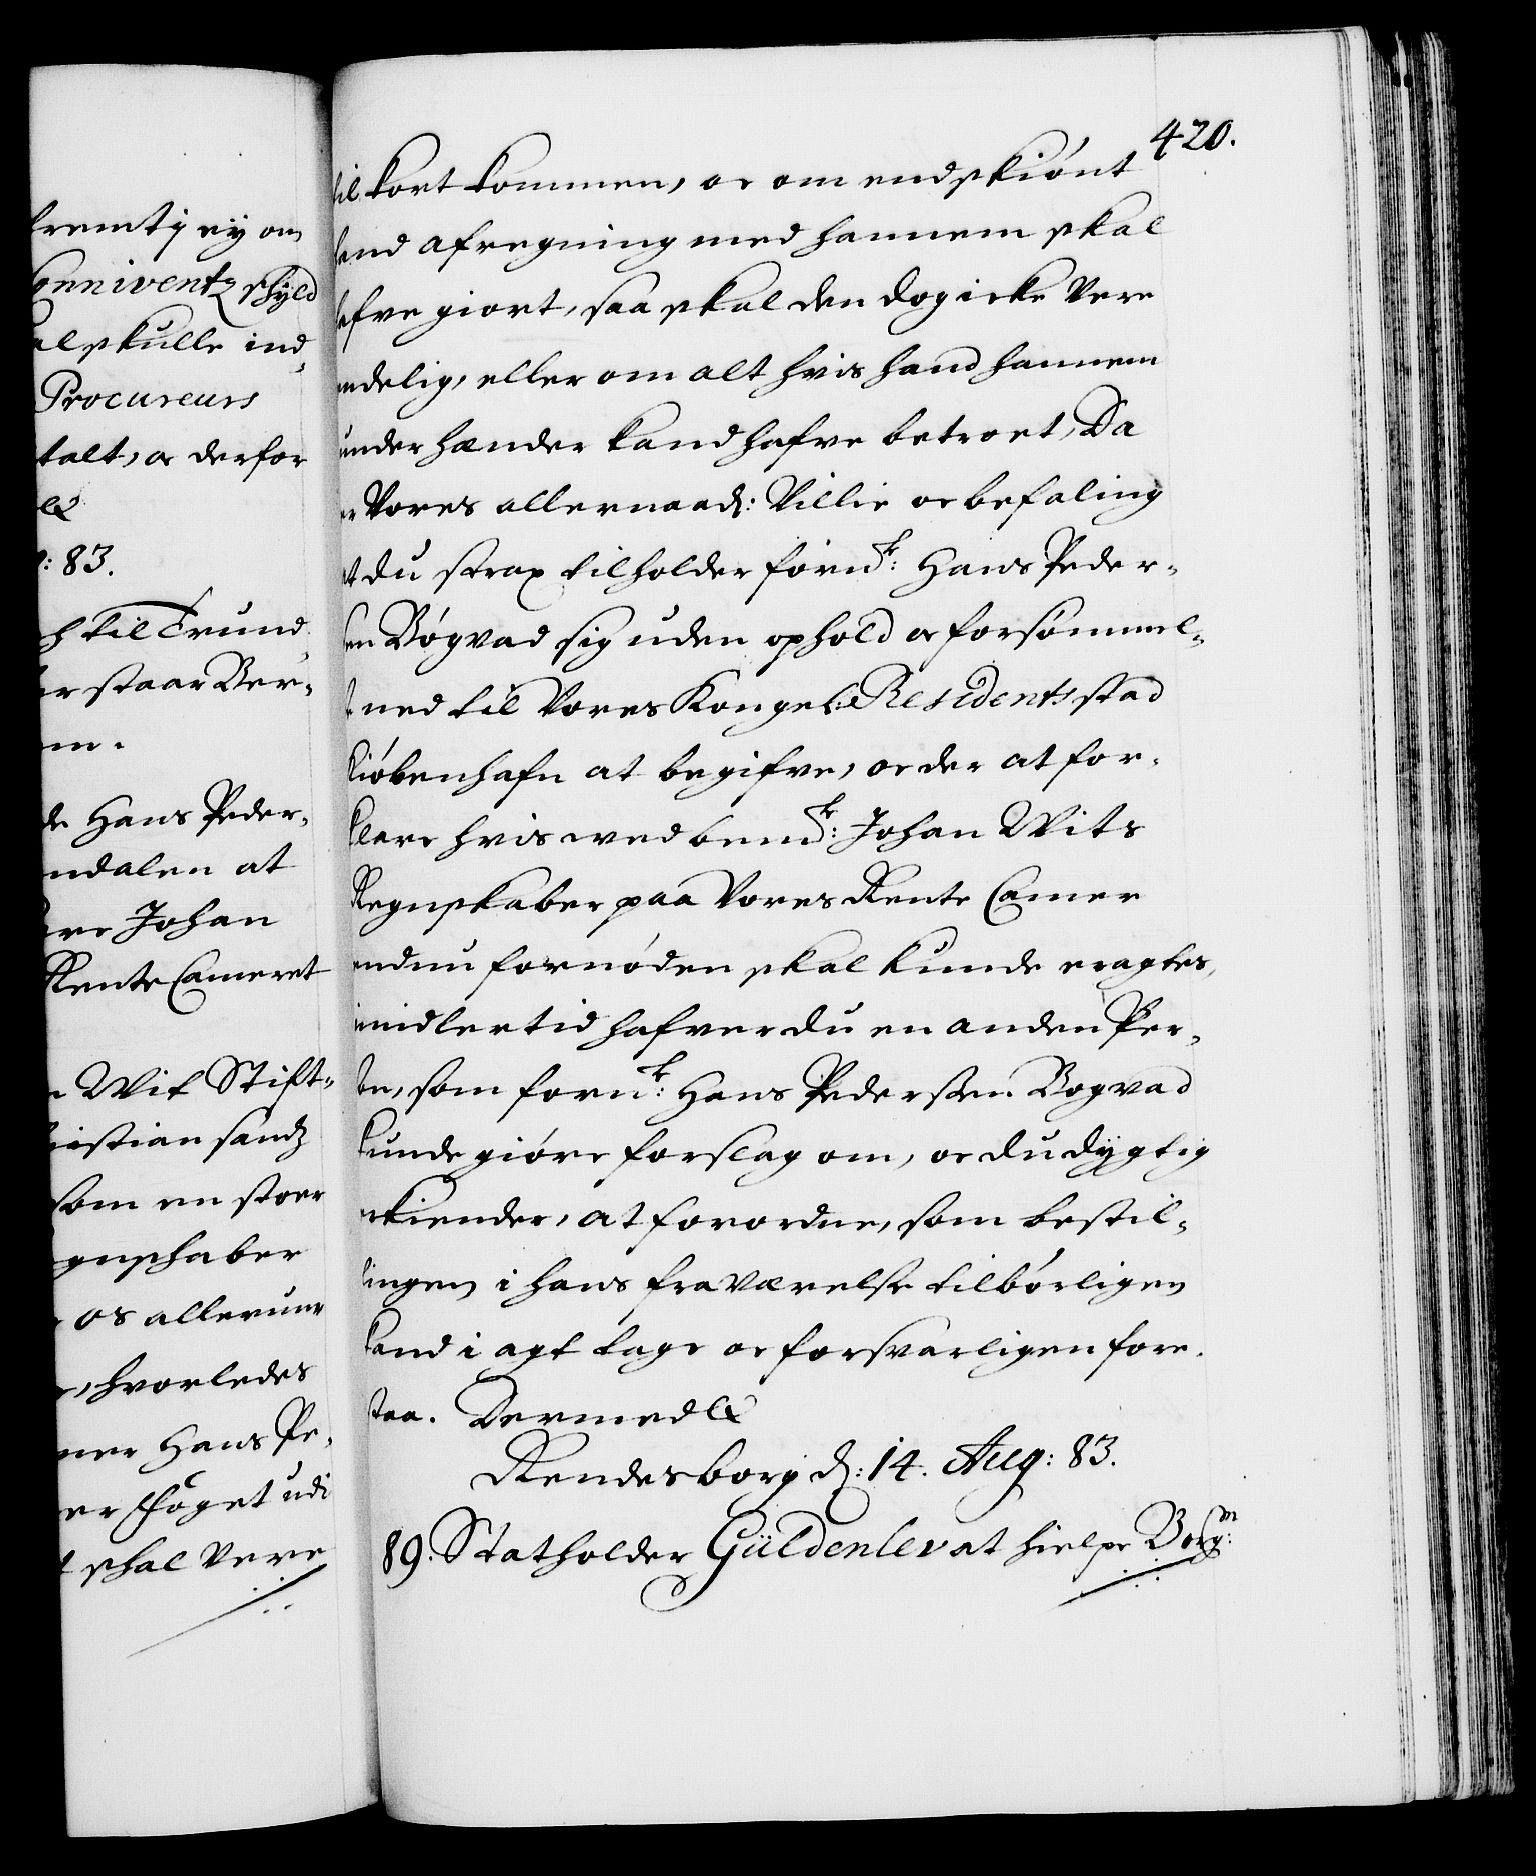 fremtj ej om
Conniventz skyld
al skulle ind„
Procureurs
talt, oc derfor
&
: 83.
h til Trund„
er staar Ber„
en.
de Hans Peder„
ndalen at
ere Johan
Rente Cameret
n Wit Stift„
istian sandz
som en stoer
gnskaber
os allerund
, hvorledes
ner Hans Pe„
er Foget udi
t skal vere
420.
til kort kommen, oc om endskiönt
hand afregning med hannem skal
hafve giort, saa skal den dog icke vere
endelig, eller om alt hvis hand hannem
under hænder kand hafve betroet, Da
er Vores allernaadj: Villie oc befaling
at du strax tilholderförnk: Hans Peder„
sen Bögvad sig uden ophold oc forsömmel„
se ned til Vores Kongel: Residents stad
Kiöbenhafn at begifve, oc der at for„
klare hvis wed bemk: Johan Wits
Regnskaber paa Vores Rente Camer
endnu fornöden skal kunde eragtes,
imidlertid hafver du en anden Per„
son, som fornk: Hans Pedersen Bogvad
kunde giöre forslag om, oc du dygtig
erkiender, at forordne, som bestil„
lingen i hans fraværelse tilbörligen
kand i agt tage oc forsvarligen fore„
staa. Dermed &
Rendesborg dj: 14. Aug: 83.
89. Statholder Güldenlev at hielpe Borgm: